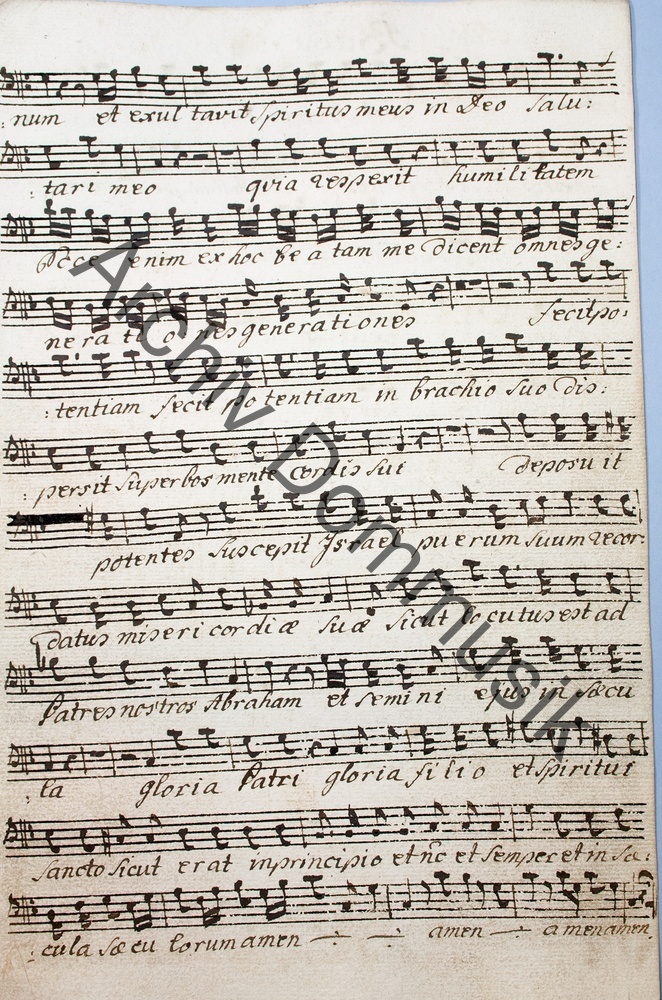 : num et exul tavit Spiritus meus in Deo Salu:
: tari meo quia respexit humilitatem
Ecce enim ex hoc be a tam me dicent omnes ge:
nera ti o nes generationes fecit po:
: tentiam fecit po tentiam in brachio suo dis:
: persit Superbos mente cordis sui deposuit
potentes Suscepit Israel puerum suum recor:
datus miseri cordiæ suæ sicut locutus est ad
Patres nostros Abraham et semini ejus in sæcu
la gloria Patri gloria filio et spiritui
Sancto sicut erat in principio et nc̄ et semper et in sæ:
: cula sæcu lorum amen amen amen amen
Archiv Dommusik